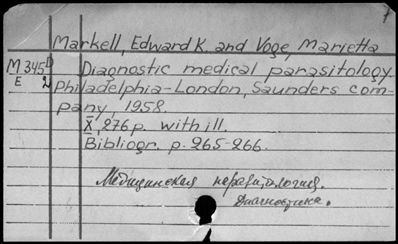 Markell, Edward K. and Voge, Marietta
M345D Diagnostic medical parasitology.
E 2 Philadelphia-London, Saunders com-
pany, 1958.
X, 276 p. with ill.
Bibliogr. p. 265-266.
Медицинская паразитология.
Диагностика.